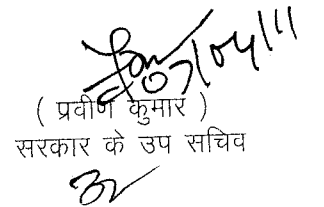 07/04/11
( प्रवीण कुमार )
सरकार के उप सचिव